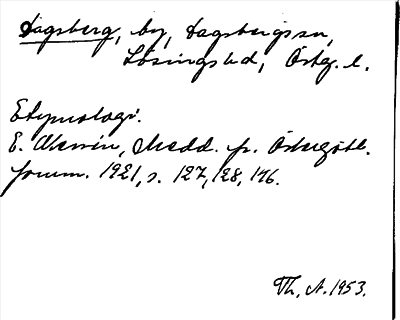 Dagsberg, by, Dagsbergs sn,
Lösings hd, Östg. l.
Etymologi.
E. Alerrin, Medd. fr. Östergötl.
fornm. 1921, s. 127, 128, 146.
Th. A. 1953.